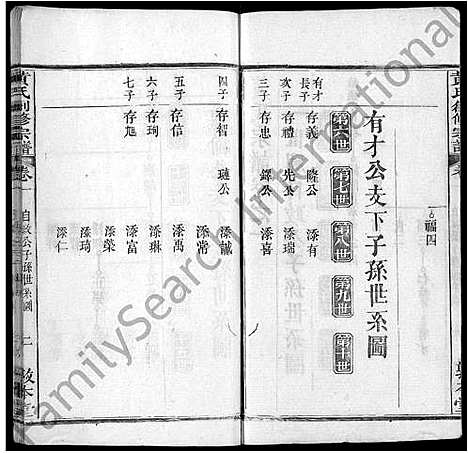 福四
有才公支下子孫世系圖
第六世 第七世 第八世 第九世 第十世
有才
長子 存義 隆公 添有
次子 存禮 先公 添瑞
三子 存忠 鐸公 添喜
四子 存智 璉公 添誠
添常
五子 存信 添萬
六子 存珣 添琳
七子 存旭 添富
添榮
添琦
添仁
黃氏 修宗譜 卷
自政公子孫世系圖
敦本堂
FamilySearch International